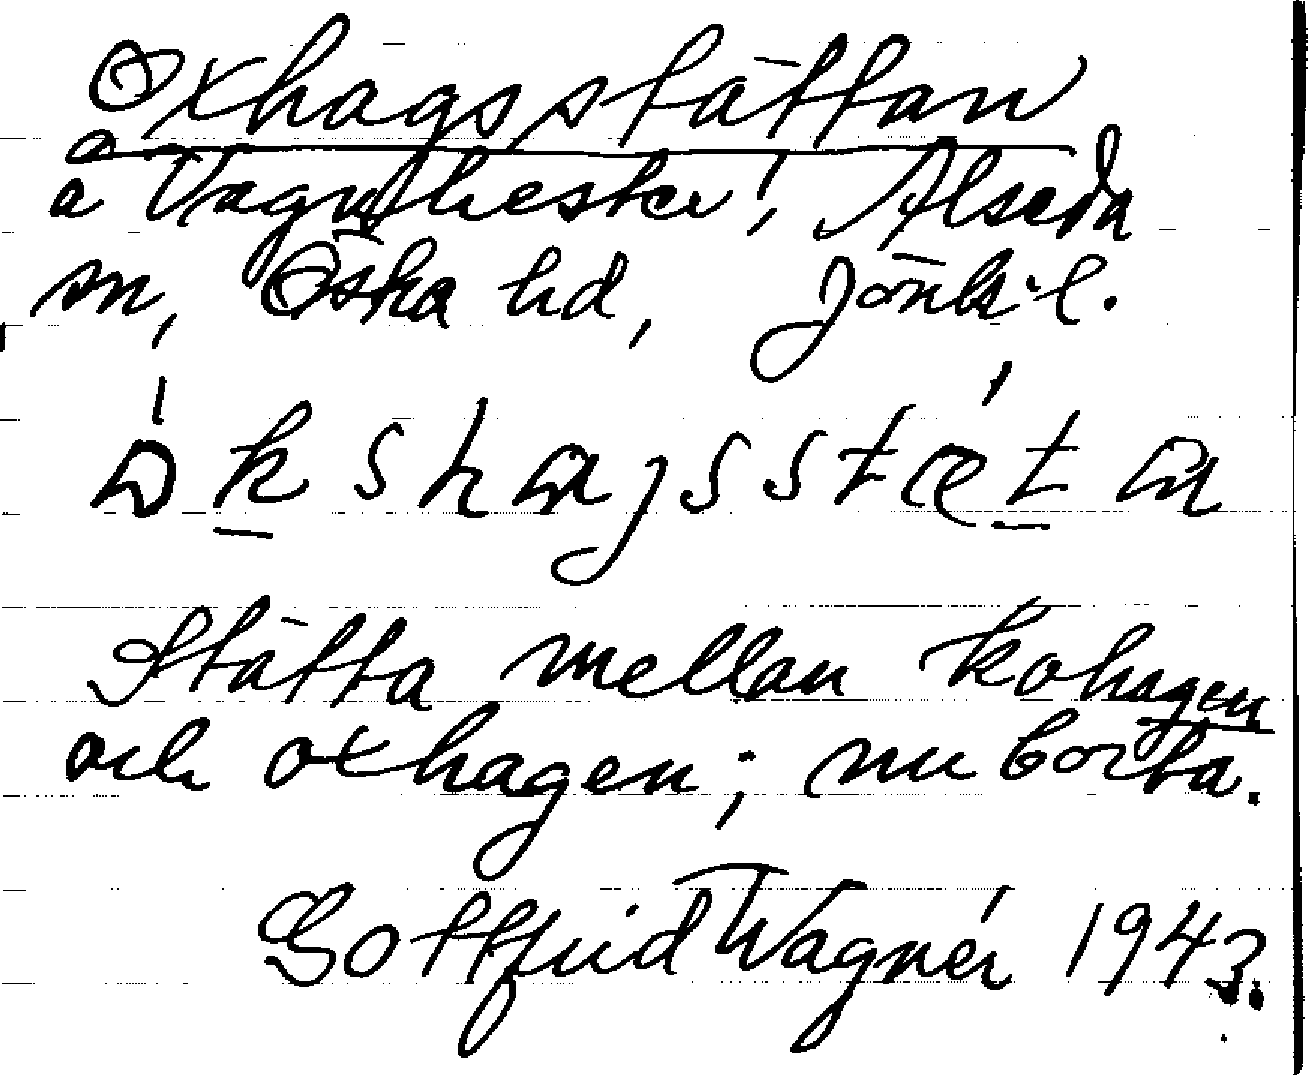 Oxhagsstättan
å Vagnhester, Alseda
sn, Östra hd, Jönk. l.
Stätta mellan kohagen
och oxhagen; nu borta.
Gottfrid Wagnér 1943.